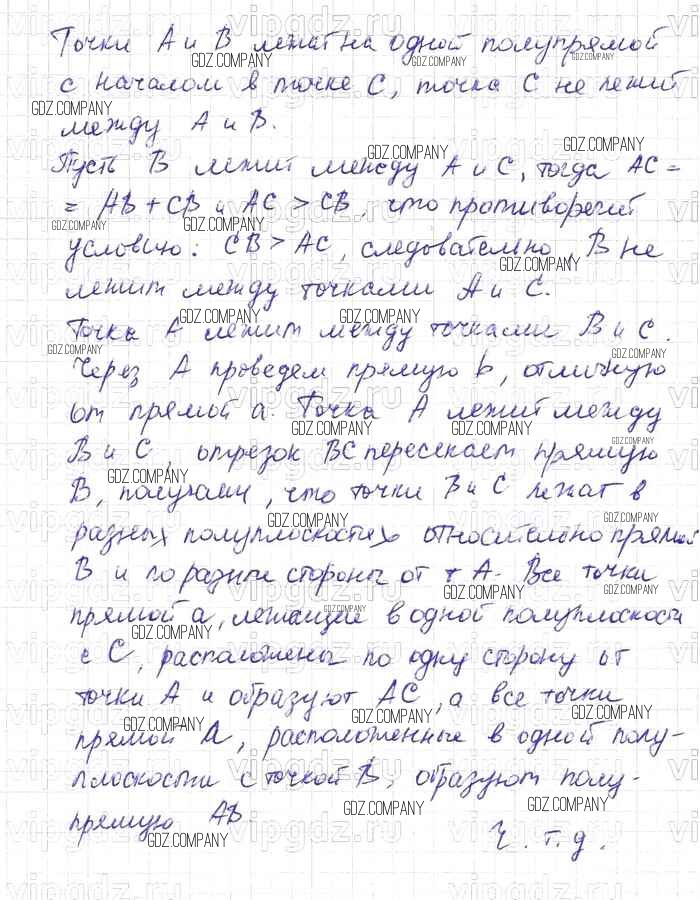 Точки А и В лежат на одной полупрямой
с началом в точке С, точка С не лежит
между А и В.
Пусть В лежит между А и С, тогда АС =
= АВ + СВ и АС > СВ, что противоречит
условию: СВ > АС, следовательно, В не
лежит между точками А и С.
Точка А лежит между точками В и С.
Через А проведем прямую b, отличную
от прямой а. Точка А лежит между
В и С, отрезок ВС пересекает прямую
В, получаем, что точки В и С лежат в
разных полуплоскостях относительно прямой
В и по разные стороны от т А. Все точки
прямой а, лежащие в одной полуплоскости
с С, расположены по одну сторону от
точки А и образуют АС, а все точки
прямой а, расположенные в одной полу-
плоскости с точкой В, образуют полу-
прямую АВ
Ч.т.д.
GDZ.COMPANY
vipgdz.ru